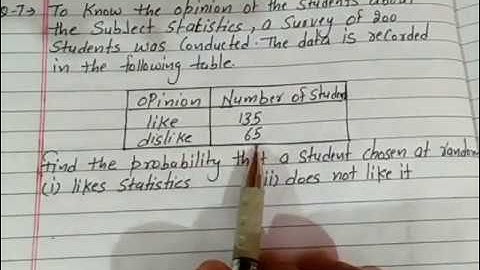 Q-7→ To Know the opinion of the students about
the Subject Statistics, a Survey of 200
Students was Conducted. The data is recorded
in the following table.
OPinion Number of Student
like 135
dislike 65
find the probability that a student chosen at random
(i) likes Statistics (ii) does not like it